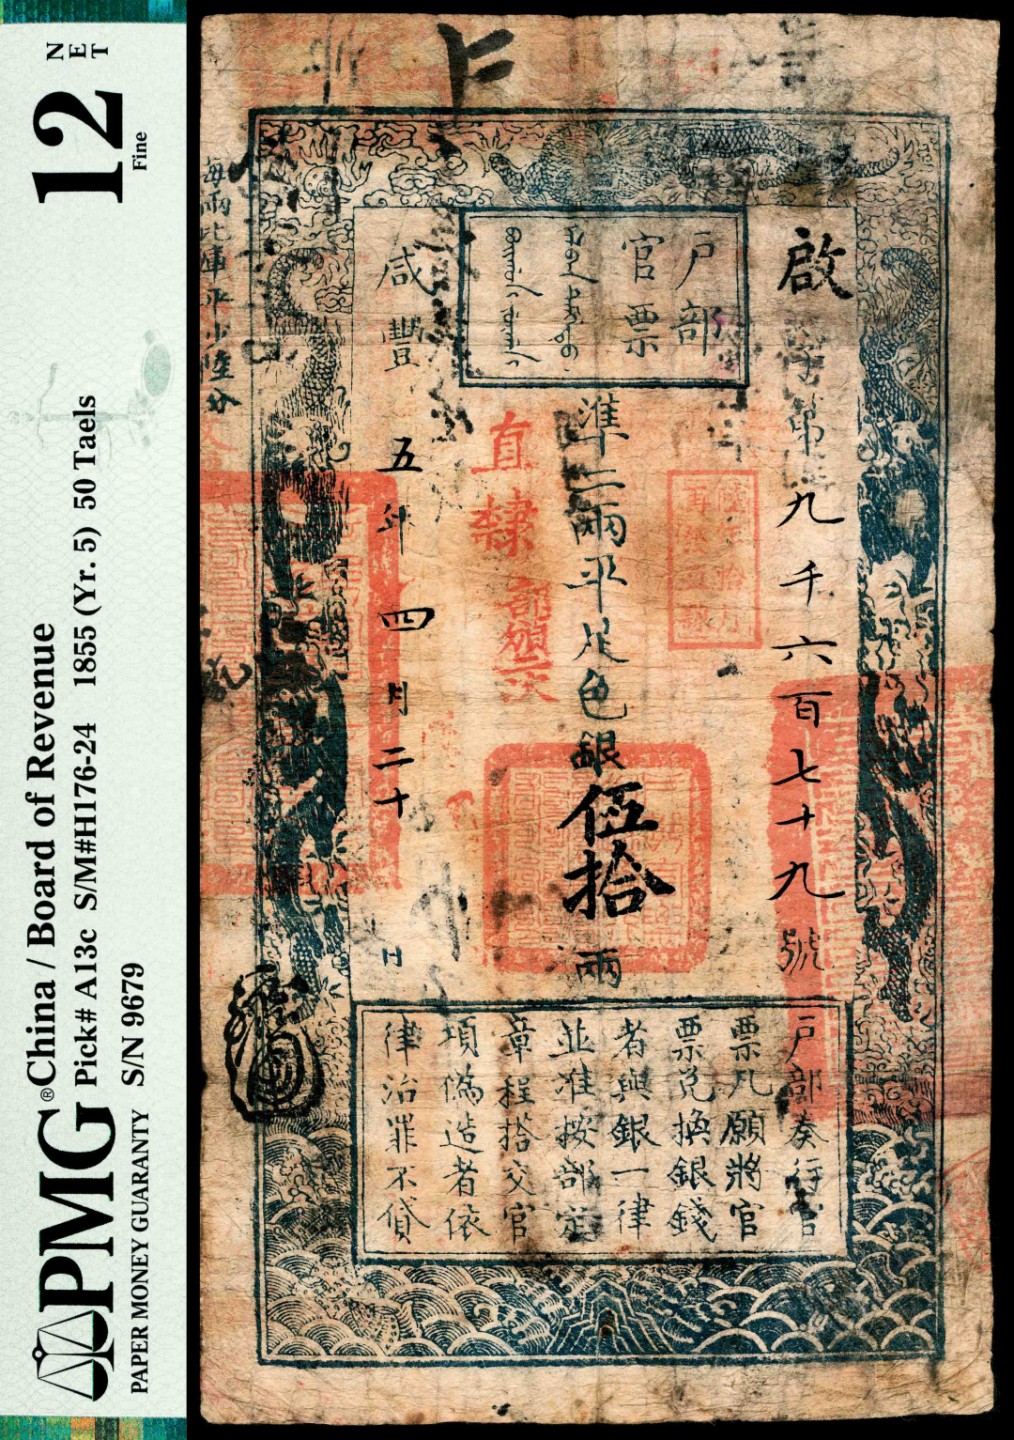 12
NET
Fine
®China / Board of Revenue
Pick# A13c S/M#H176-24 1855 (Yr. 5) 50 Taels
S/N 9679
PMG
PAPER MONEY GUARANTY
戶部
官票
啟字第九千六百七十九號
準二兩平足色銀伍拾兩
直隸
部頒二次
咸豐五年四月二十日
每兩比庫平少陸分
戶部奏行官
票凡願將官
票兌換銀錢
者與銀一律
並準按部定
章程搭交官
項偽造者依
律治罪不貸